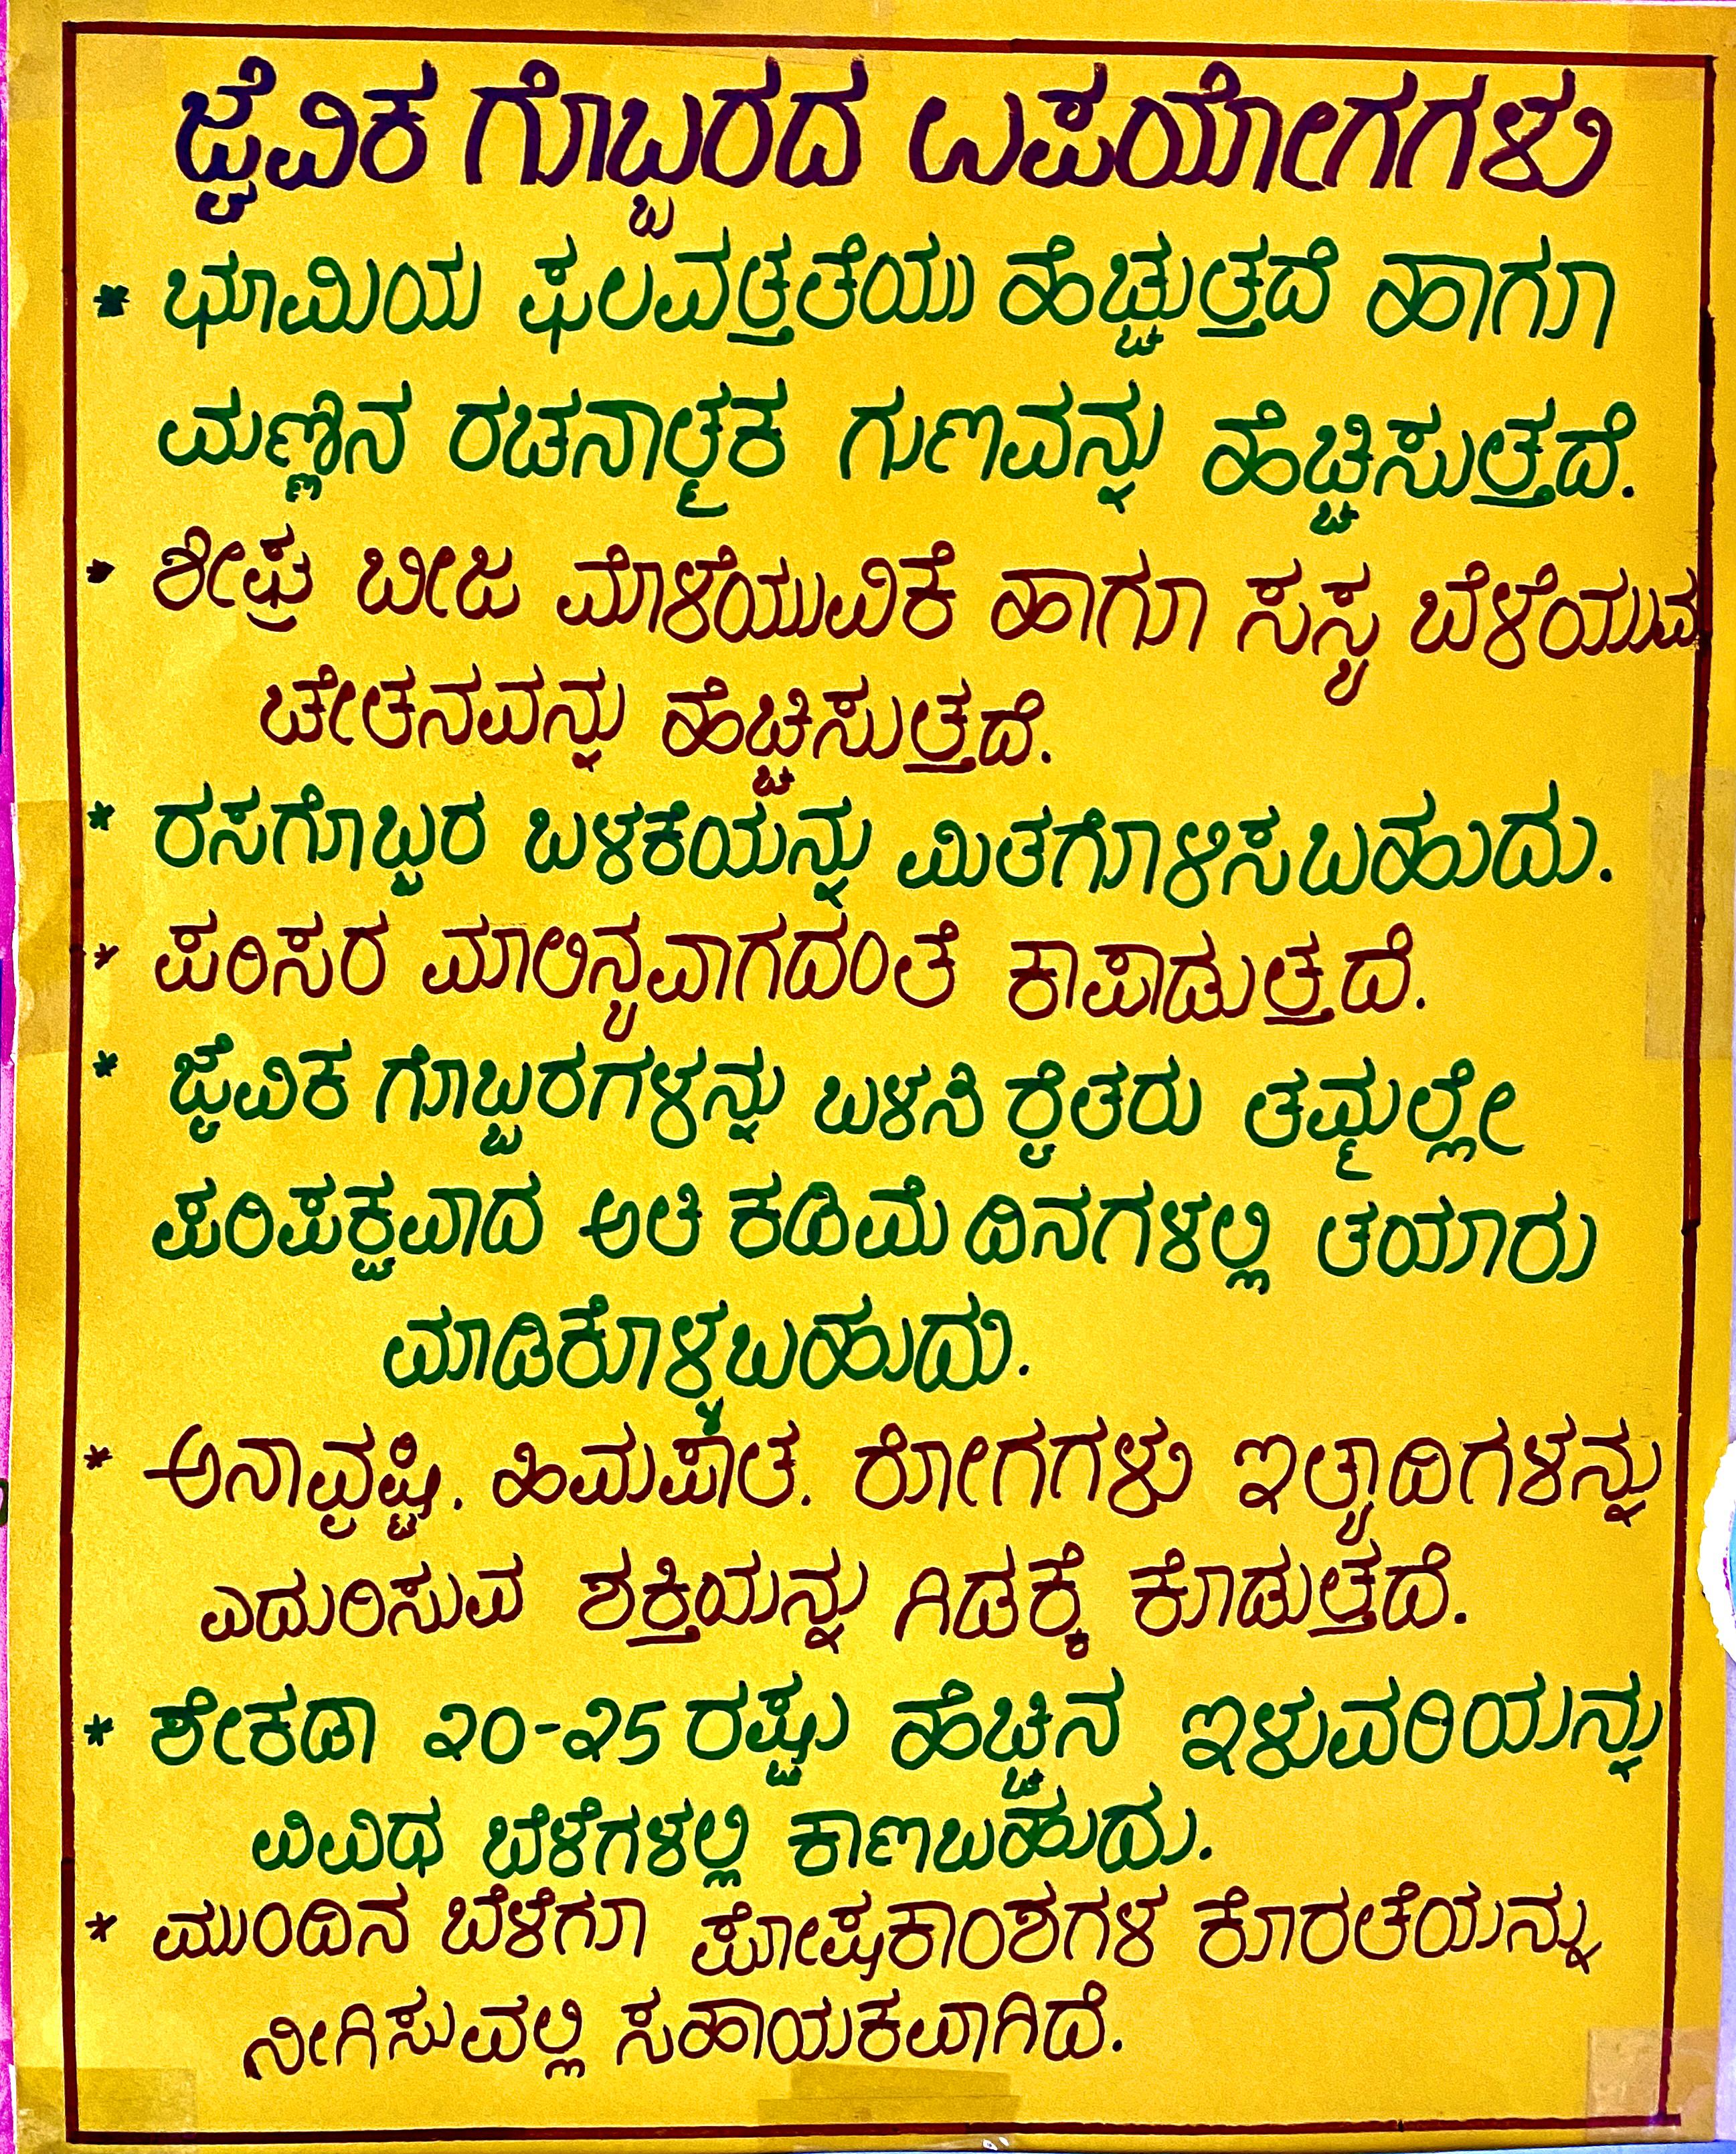 ಜೈವಿಕ ಗೊಬ್ಬರದ ಉಪಯೋಗಗಳು
* ಭೂಮಿಯ ಫಲವತ್ತತೆಯು ಹೆಚ್ಚುತ್ತದೆ ಹಾಗೂ
ಮಣ್ಣಿನ ರಚನಾತ್ಮಕ ಗುಣವನ್ನು ಹೆಚ್ಚಿಸುತ್ತದೆ.
* ಶೀಘ್ರ ಬೀಜ ಮೊಳೆಯುವಿಕೆ ಹಾಗೂ ಸಸ್ಯ ಬೆಳೆಯುವ
ಚೇತನವನ್ನು ಹೆಚ್ಚಿಸುತ್ತದೆ.
* ರಸಗೊಬ್ಬರ ಬಳಕೆಯನ್ನು ಮಿತಗೊಳಿಸಬಹುದು.
* ಪರಿಸರ ಮಾಲಿನ್ಯವಾಗದಂತೆ ಕಾಪಾಡುತ್ತದೆ.
* ಜೈವಿಕ ಗೊಬ್ಬರಗಳನ್ನು ಬಳಸಿ ರೈತರು ತಮ್ಮಲ್ಲೇ
ಪರಿಪಕ್ವವಾದ ಅತಿ ಕಡಿಮೆ ದಿನಗಳಲ್ಲಿ ತಯಾರು
ಮಾಡಿಕೊಳ್ಳಬಹುದು.
* ಅನಾವೃಷ್ಟಿ. ಹಿಮಪಾತ. ರೋಗಗಳು ಇತ್ಯಾದಿಗಳನ್ನು
ಎದುರಿಸುವ ಶಕ್ತಿಯನ್ನು ಗಿಡಕ್ಕೆ ಕೊಡುತ್ತದೆ.
* ಶೇಕಡಾ ೨೦-೨5 ರಷ್ಟು ಹೆಚ್ಚಿನ ಇಳುವರಿಯನ್ನು
ವಿವಿಧ ಬೆಳೆಗಳಲ್ಲಿ ಕಾಣಬಹುದು.
* ಮುಂದಿನ ಬೆಳೆಗೂ ಪೋಷಕಾಂಶಗಳ ಕೊರತೆಯನ್ನು
ನೀಗಿಸುವಲ್ಲಿ ಸಹಾಯಕವಾಗಿದೆ.